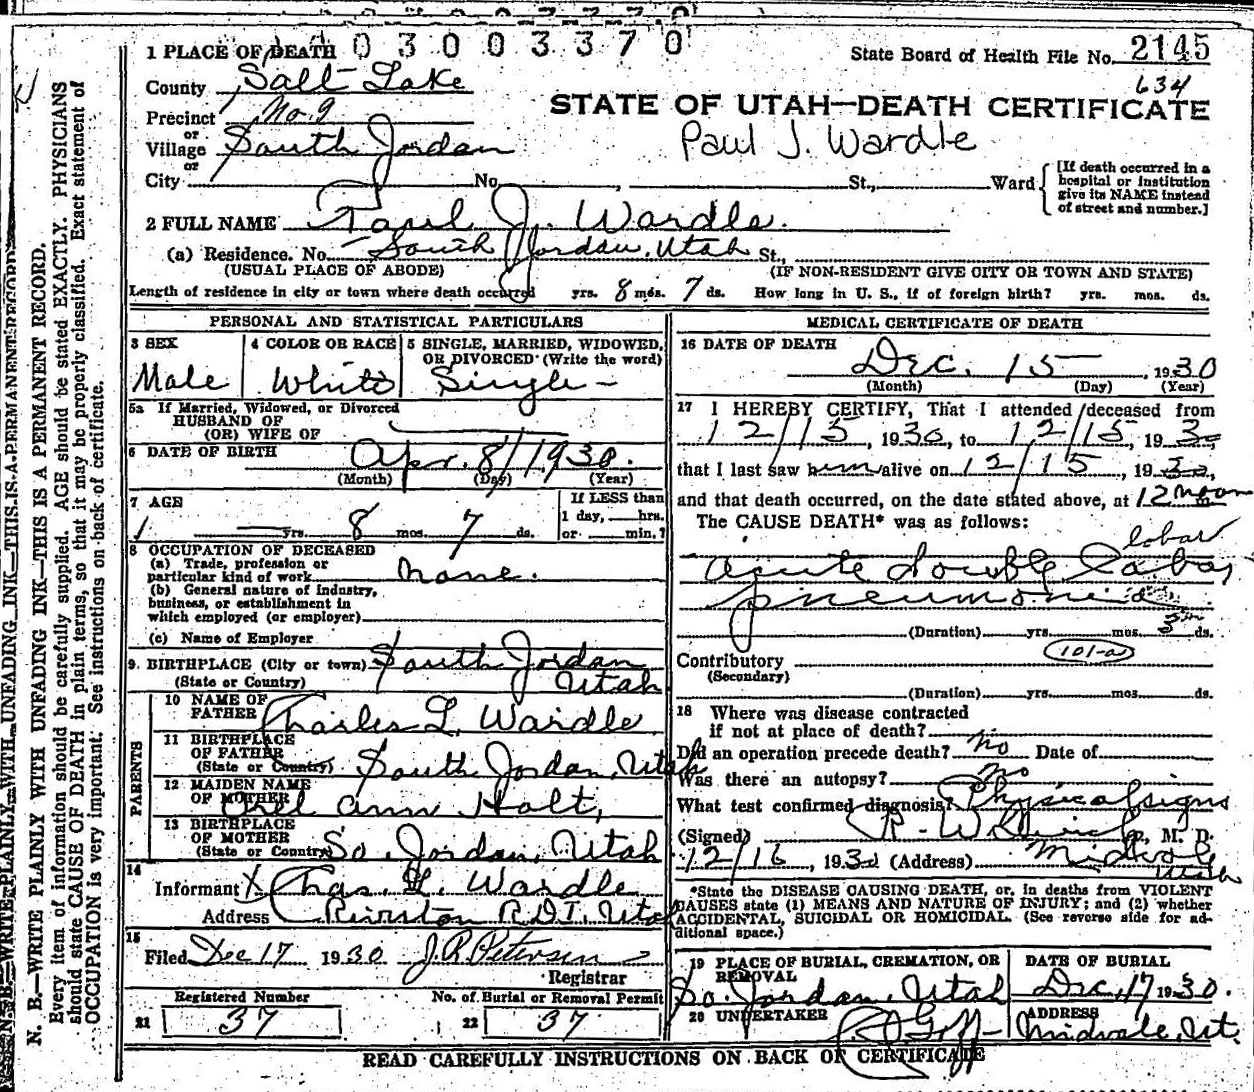 0300 3370
1 PLACE OF DEATH
State Board of Health File No. 2145
County Salt Lake
634
STATE OF UTAH—DEATH CERTIFICATE
Precinct No. 9
or
Village South Jordan
Paul J. Wardle
or
City No. , St., Ward
[If death occurred in a
hospital or institution
give its NAME instead
of street and number.]
2 FULL NAME Paul J. Wardle.
(a) Residence. No. South Jordan, Utah St.,
(USUAL PLACE OF ABODE) (IF NON-RESIDENT GIVE CITY OR TOWN AND STATE)
Length of residence in city or town where death occurred yrs. 8 mos. 7 ds. How long in U. S., if of foreign birth? yrs. mos. ds.
PERSONAL AND STATISTICAL PARTICULARS
3 SEX
Male
4 COLOR OR RACE
White
5 SINGLE, MARRIED, WIDOWED,
OR DIVORCED (Write the word)
Single
5a If Married, Widowed, or Divorced
HUSBAND OF
(OR) WIFE OF
6 DATE OF BIRTH Apr. 8/1930.
(Month) (Day) (Year)
7 AGE
yrs. 8 mos. 7 ds.
If LESS than
1 day, hrs.
or min.?
8 OCCUPATION OF DECEASED
(a) Trade, profession or
particular kind of work none.
(b) General nature of industry,
business, or establishment in
which employed (or employer)
(c) Name of Employer
9. BIRTHPLACE (City or town) South Jordan
(State or Country) Utah
PARENTS
10 NAME OF
FATHER Charles L. Wardle
11 BIRTHPLACE
OF FATHER
(State or Country) South Jordan, Utah
12 MAIDEN NAME
OF MOTHER Ann Holt,
13 BIRTHPLACE
OF MOTHER
(State or Country) So. Jordan, Utah
14
Informant X Chas. L. Wardle
Address Riverton R.D.1, Utah
15
Filed Dec 17 1930 J.R. Petersen
Registrar
Registered Number
21 37
No. of Burial or Removal Permit
22 37
MEDICAL CERTIFICATE OF DEATH
16 DATE OF DEATH
Dec. 15 1930
(Month) (Day) (Year)
17 I HEREBY CERTIFY, That I attended deceased from
12/15, 1930, to 12/15, 1930
that I last saw him alive on 12/15, 1930,
and that death occurred, on the date stated above, at 12 noon m.
The CAUSE DEATH* was as follows:
lobar
acute double lobar
pneumonia
(Duration) yrs. mos. 3 ds.
Contributory 101-a
(Secondary)
(Duration) yrs. mos. ds.
18 Where was disease contracted
if not at place of death?
Did an operation precede death? no Date of
Was there an autopsy? no
What test confirmed diagnosis? Physical signs
(Signed) R. W. M. D.
12/16, 1930 (Address) Midvale
Utah
*State the DISEASE CAUSING DEATH, or, in deaths from VIOLENT
CAUSES state (1) MEANS AND NATURE OF INJURY; and (2) whether
ACCIDENTAL, SUICIDAL OR HOMICIDAL. (See reverse side for ad-
ditional space.)
19 PLACE OF BURIAL, CREMATION, OR
REMOVAL
So. Jordan, Utah
DATE OF BURIAL
Dec, 17 1930.
20 UNDERTAKER
Goff
ADDRESS
Midvale, Ut.
READ CAREFULLY INSTRUCTIONS ON BACK OF CERTIFICATE
N. B.—WRITE PLAINLY WITH UNFADING INK—THIS IS A PERMANENT RECORD
N. B.—WRITE PLAINLY WITH UNFADING INK—THIS IS A PERMANENT RECORD.
Every item of information should be carefully supplied. AGE should be stated EXACTLY. PHYSICIANS
should state CAUSE OF DEATH in plain terms, so that it may be properly classified. Exact statement of
OCCUPATION is very important. See instructions on back of certificate.